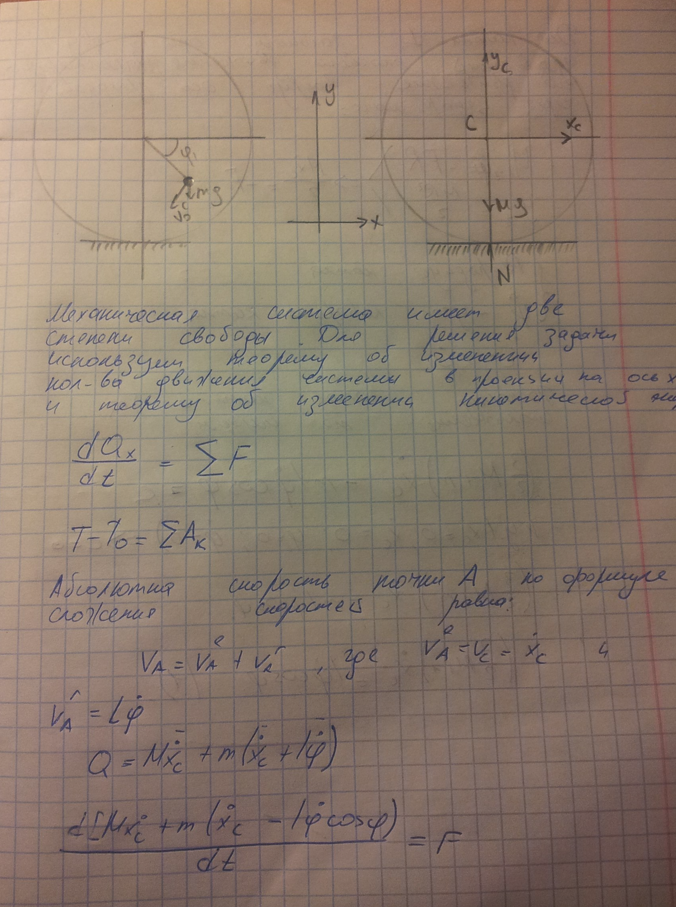 y
y_c
C
x_c
φ
mg
x
Mg
N
Механическая система имеет две
степени свободы. Для решения задачи
используем теорему об изменении
кол-ва движения системы в проекции на ось x
и теорему об изменении кинетической
dQ_x/dt = ΣF
T-T₀ = ΣA_k
Абсолютна скорость точки A по формуле
сложения скоростей равна:
V_A = V_A^e + V_A^r , где V_A^e = V_C = ẋ_c и
V_A^r = lφ̇
Q = Mẋ_c + m(ẋ_c + lφ̇)
d[Mẋ_c + m(ẋ_c - lφ̇cosφ)/dt = F